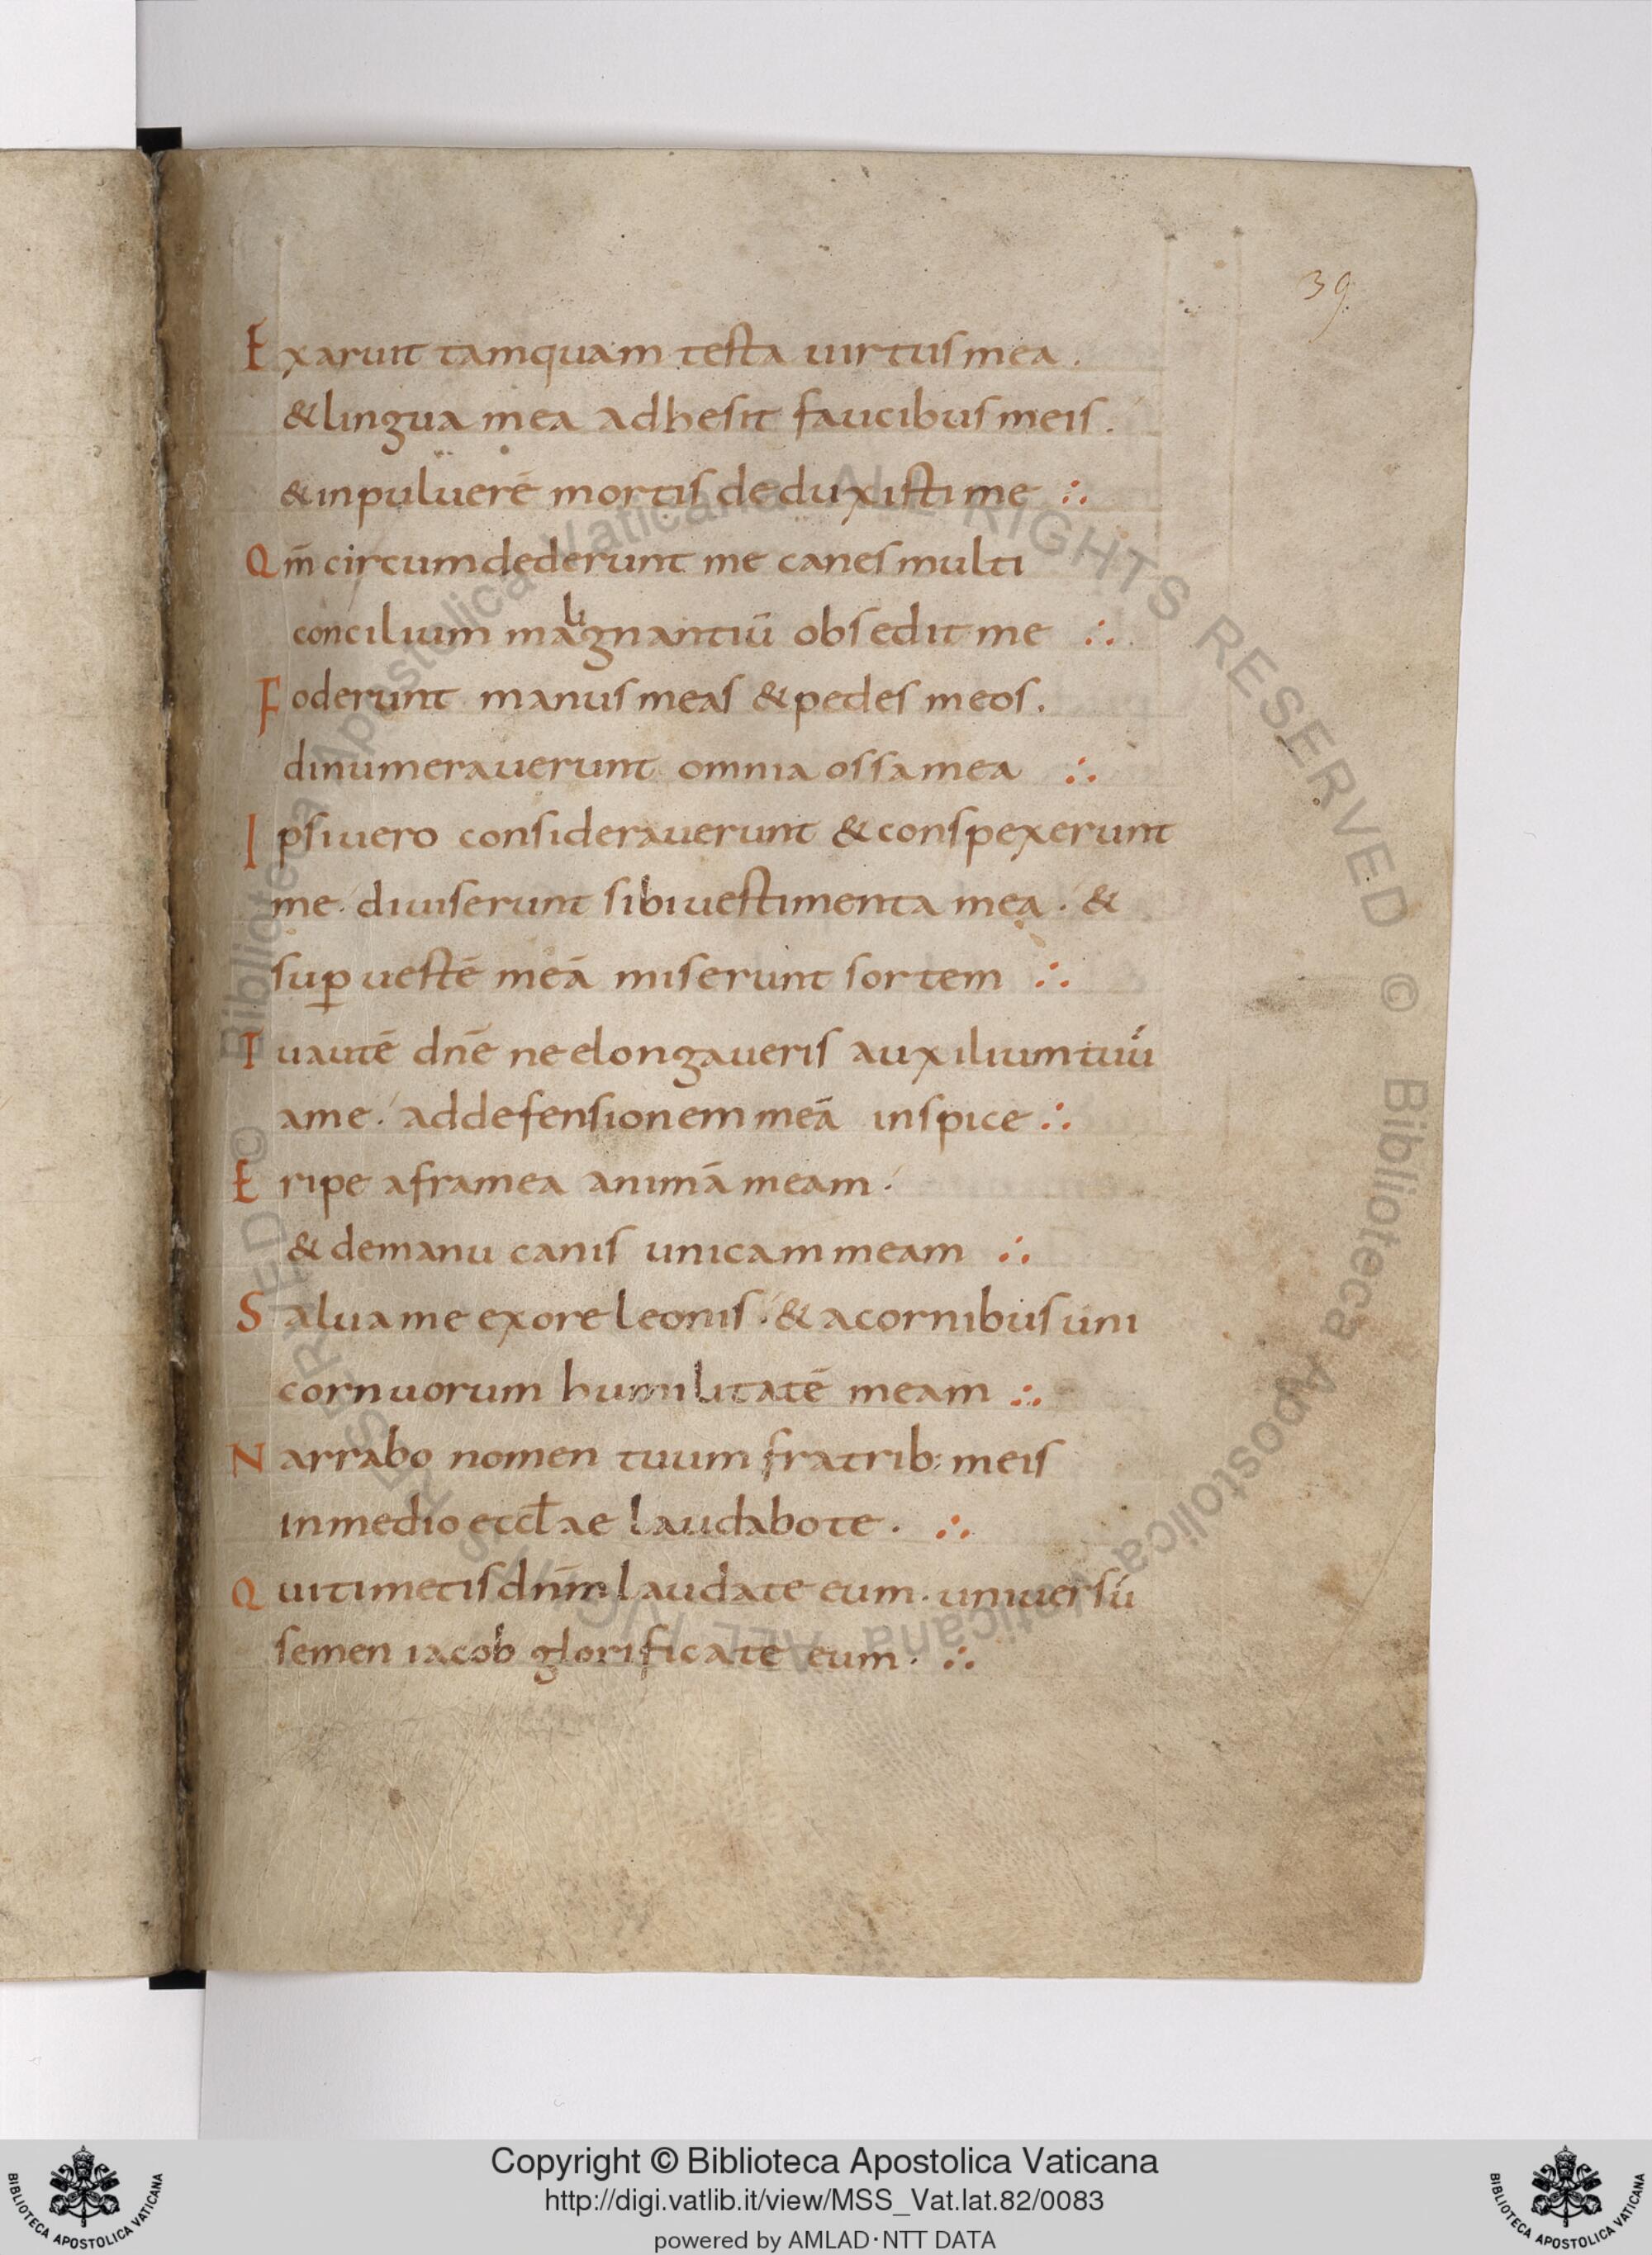 39
Exaruit tamquam testa uirtus mea .
& lingua mea adhesit faucibus meis .
& inpuluerē mortis deduxisti me ∴
Qm̄ circumdederunt me canes multi
concilium malignantiū obsedit me ∴
Foderunt manus meas & pedes meos .
dinumerauerunt omnia ossa mea ∴
Ipsi uero considerauerunt & conspexerunt
me . diuiserunt sibi uestimenta mea . &
suꝑ uestē meā miserunt sortem ∴
Tu autē dn̄e ne elongaueris auxilium tuū
a me . ad defensionem meā inspice ∴
Eripe a framea animā meam .
& de manu canis unicam meam ∴
Salua me ex ore leonis . & a cornibus uni
cornuorum humilitatē meam ∴
Narrabo nomen tuum fratrib: meis
in medio eccl̄ae laudabo te . ∴
Qui timetis dn̄m laudate eum . uniuersū
semen iacob glorificate eum . ∴
Biblioteca Apostolica Vaticana ALL RIGHTS RESERVED ©
Biblioteca Apostolica Vaticana ALL RIGHTS RESERVED ©
Copyright © Biblioteca Apostolica Vaticana
http://digi.vatlib.it/view/MSS_Vat.lat.82/0083
powered by AMLAD·NTT DATA
BIBLIOTECA APOSTOLICA VATICANA
BIBLIOTECA APOSTOLICA VATICANA